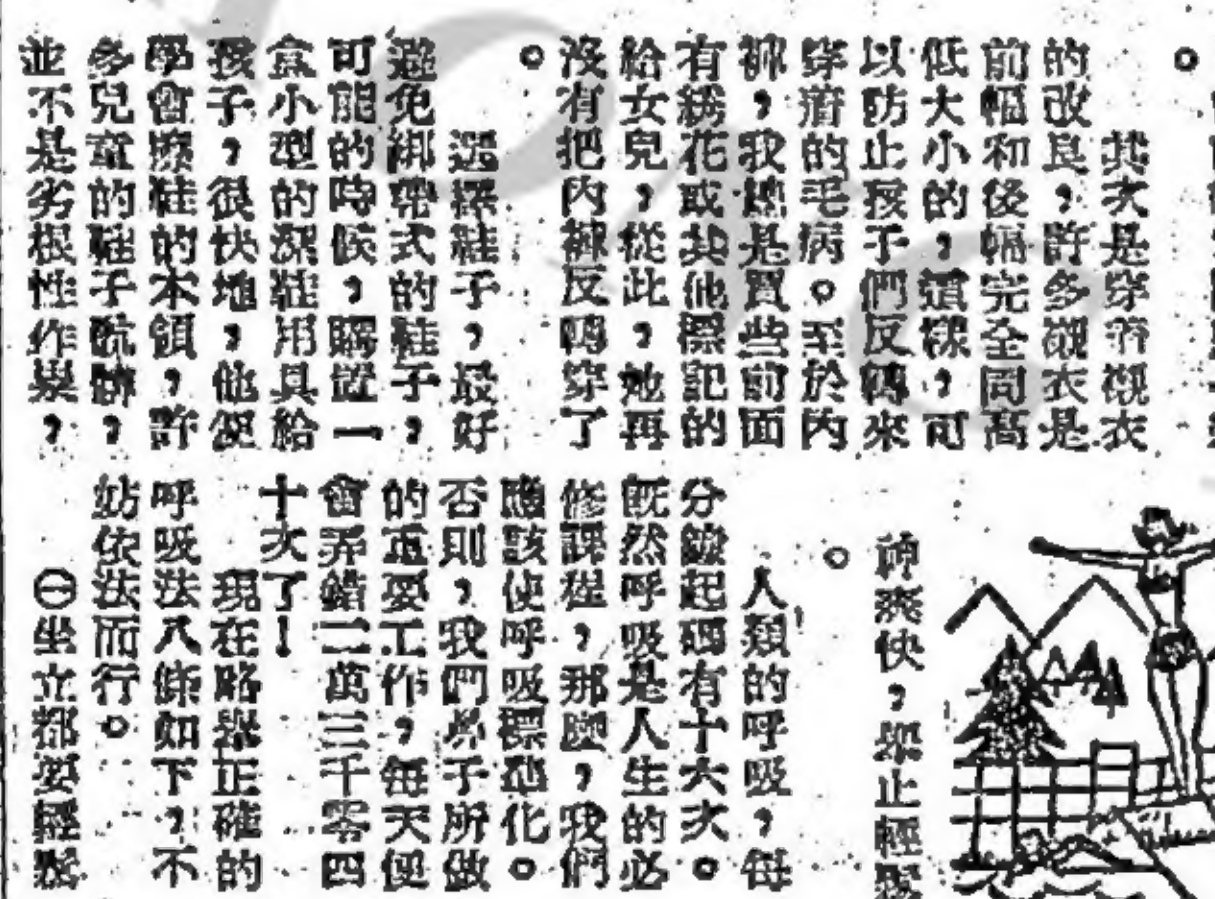 。
其次是穿着襯衣
的改良，許多襯衣是
前幅和後幅完全同高
低大小的，這樣，可
以防止孩子們反轉來
穿着的毛病。至於內
褲，我總是買些前面
有綉花或其他標記的
給女兒，從此，她再
沒有把內褲反轉穿了
。
選擇鞋子，最好
避免綁帶式的鞋子，
可能的時候，購置一
盒小型的潔鞋用具給
孩子，很快地，他便
學會擦鞋的本領，許
多兒童的鞋子骯髒，
並不是劣根性作祟，
神爽快，舉止輕鬆
。
人類的呼吸，每
分鐘起碼有十六次。
既然呼吸是人生的必
修課程，那麼，我們
應該使呼吸標準化。
否則，我們鼻子所做
的重要工作，每天便
會弄錯二萬三千零四
十次了！
現在略舉正確的
呼吸法八條如下，不
妨依法而行。
㊀坐立都要輕鬆